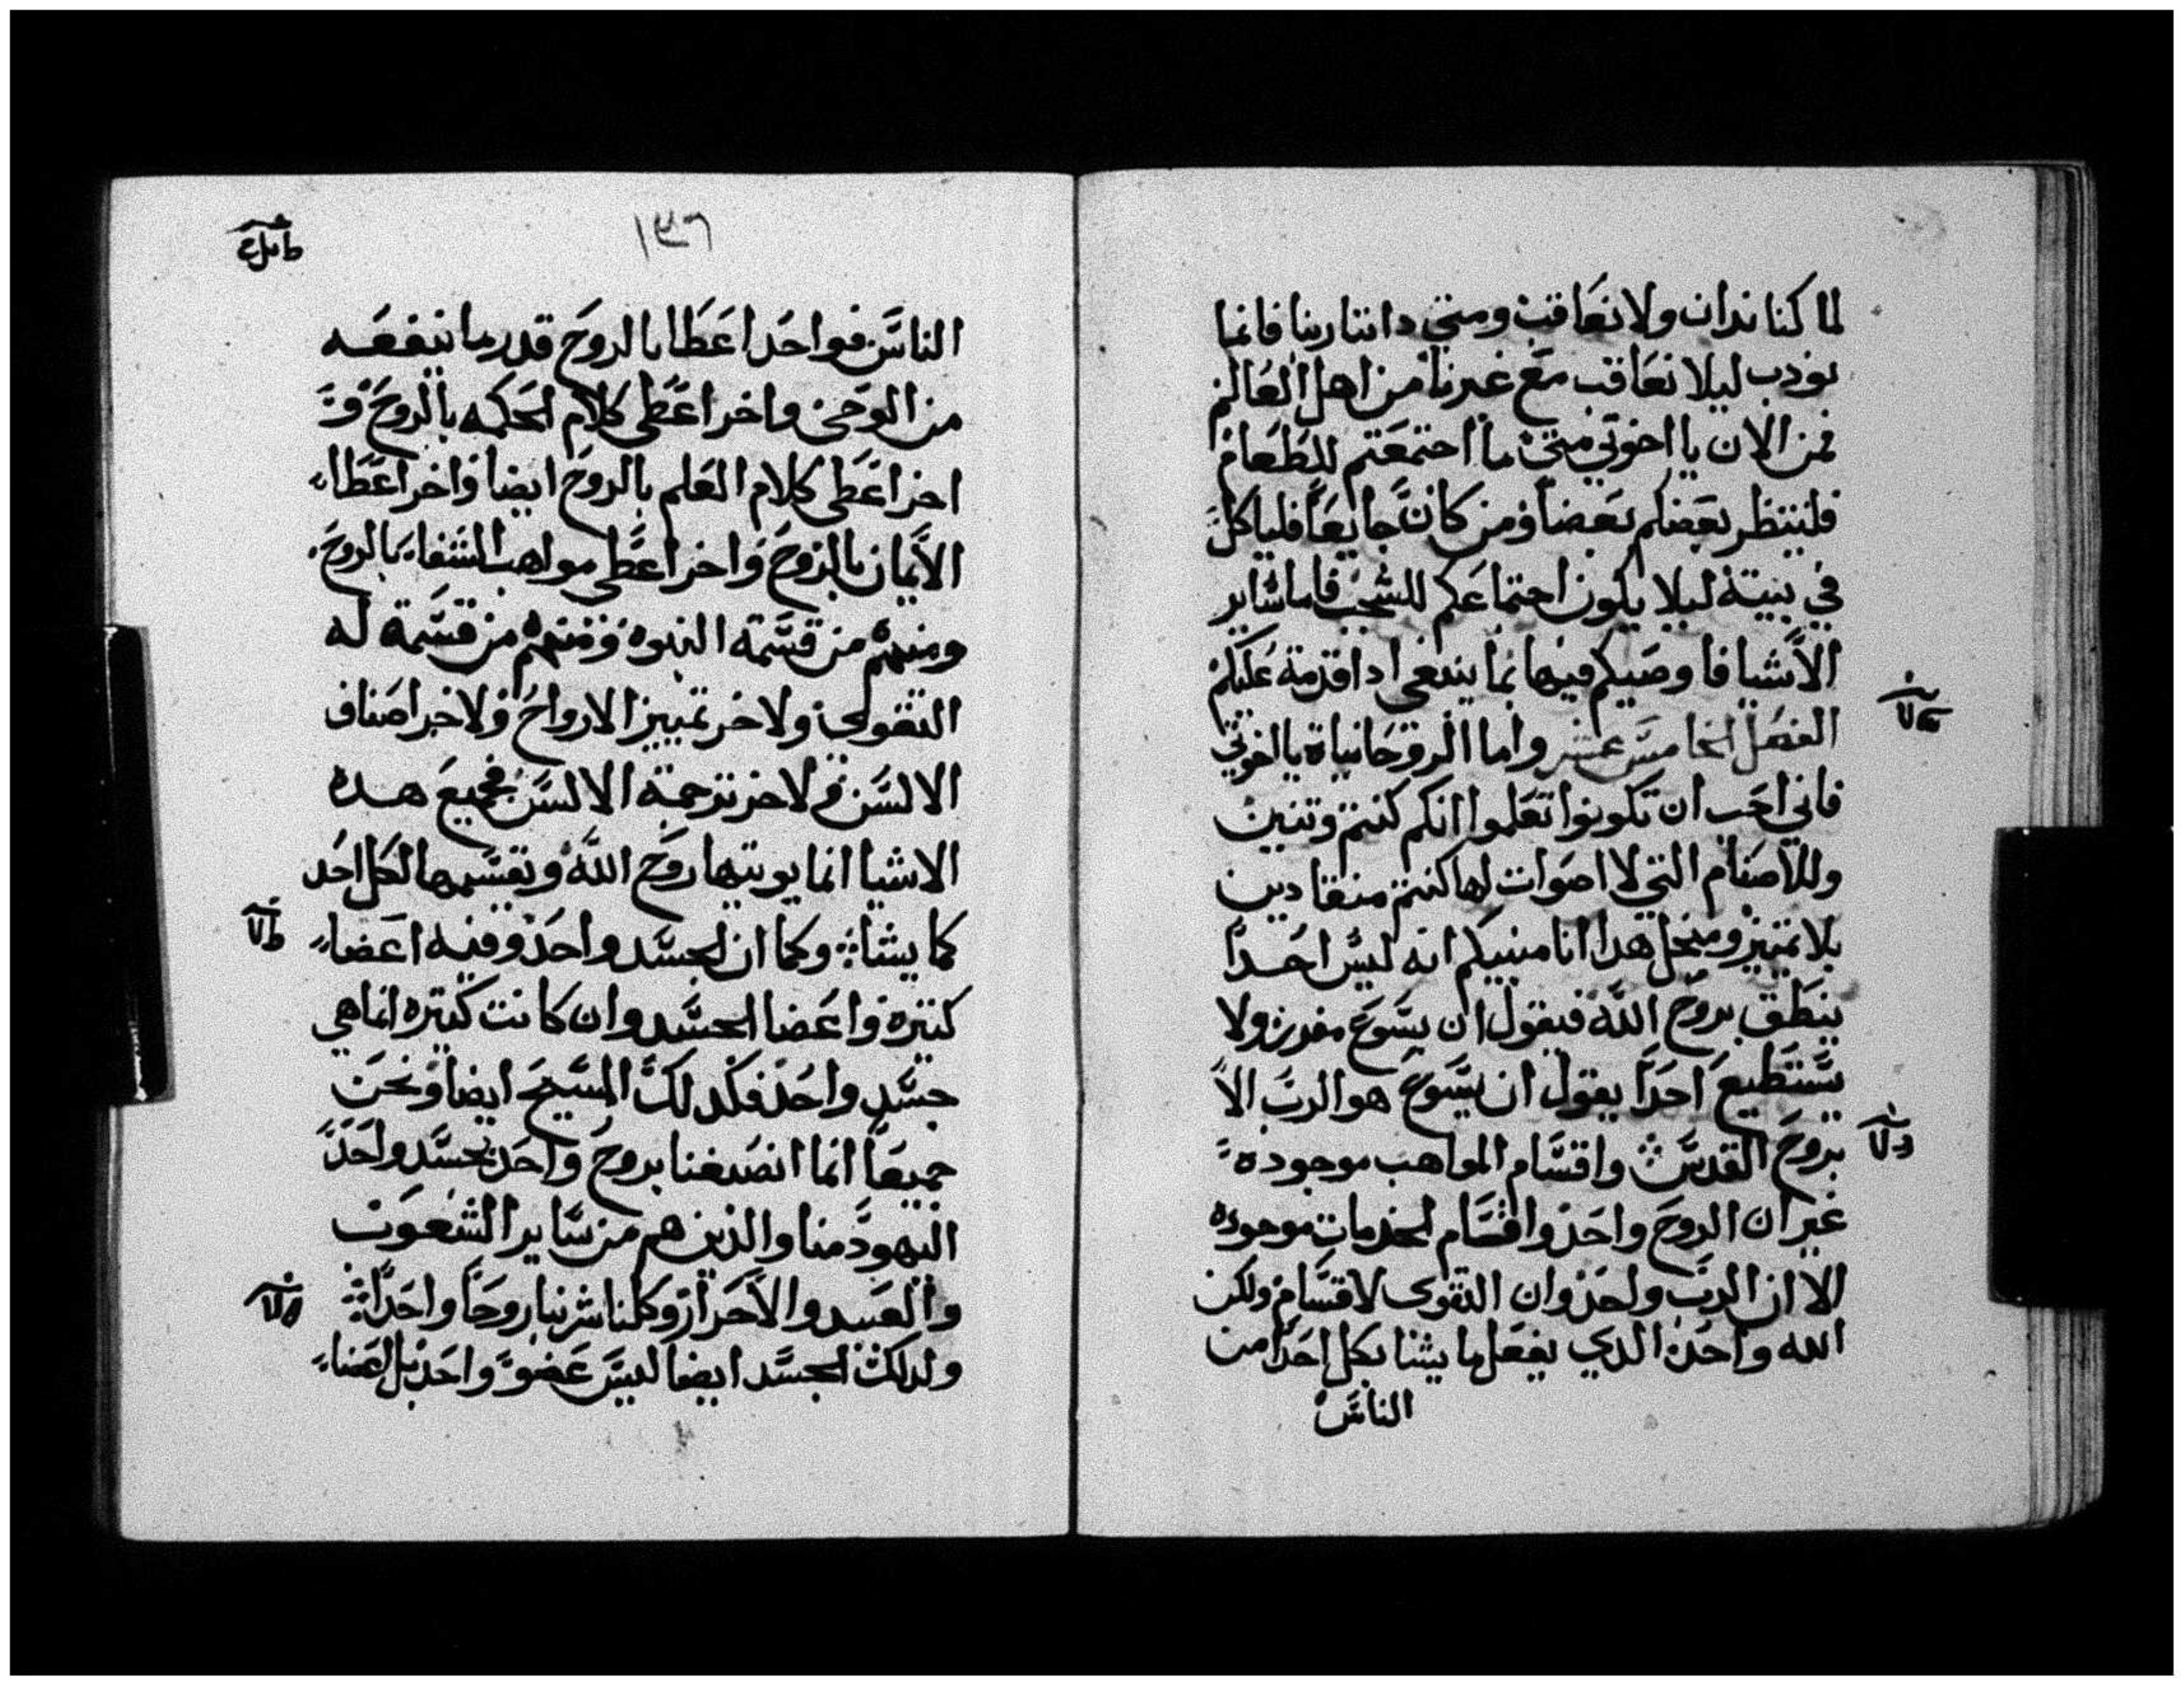 لما كنا ندان ولا نعاقب ومتي داننا ربنا فانما
نودب ليلا نعاقب مع غيرنا من اهل العالم
فمن الان يا اخوتي متي ما اجتمعتم للطعام
فلينتظر بعضكم بعضا ومن كان جايعا فلياكل
في بيته ليلا يكون اجتماعكم للشجب فاما ساير
الاشيا فاوصيكم فيها بما ينبغي ادا قدمة عليكم
الفصل الخامس عشر واما الروحانياة يا اخوتي
فاني احب ان تكونوا تعلموا انكم كنتم وتنيين
وللاصنام التي لا اصوات لها كنتم منقادين
بلا تمييز ومنجل هدا انا منبيكم انه ليس احدا
ينطق بروح الله فيقول ان يسوع مفرز ولا
يستطيع احدا يقول ان يسوع هو الرب الا
بروح القدس واقسام المواهب موجوده
غير ان الروح واحد واقسام الخدمات موجوده
الا ان الرب واحد وان القوي لاقسام ولكن
الله واحد الدي يفعل ما يشا بكل احدا من
الناس
١٣٦
الناس فواحدا عطا بالروح قدر ما ينفعه
من الوحي واخر اعطي كلام الحكمه بالروح و
اخر اعطي كلام العلم بالروح ايضا واخر اعطا
الايمان بالروح واخر اعطي مواهب الشفاء بالروح
ومنهم من قسمة النبوه ومنهم من قسمة له
التقوي ولاخر تمييز الارواح ولاخر اصناف
الالسن ولاخر ترجمة الالسن فجميع هده
الاشيا انما يوتيها روح الله ويقسمها لكل احد
كما يشا وكما ان الجسد واحد وفيه اعضاء
كتيره واعضا الجسد وان كانت كتيره انما هي
جسد واحد فكدلك المسيح ايضا ونحن
جميعا انما انصبغنا بروح واحد بجسد واحد
اليهود منا والذين هم من ساير الشعوب
والعبيد والاحرار وكلنا شربنا روحا واحدا
ولدلك الجسد ايضا ليس عضو واحد بل اعضاء